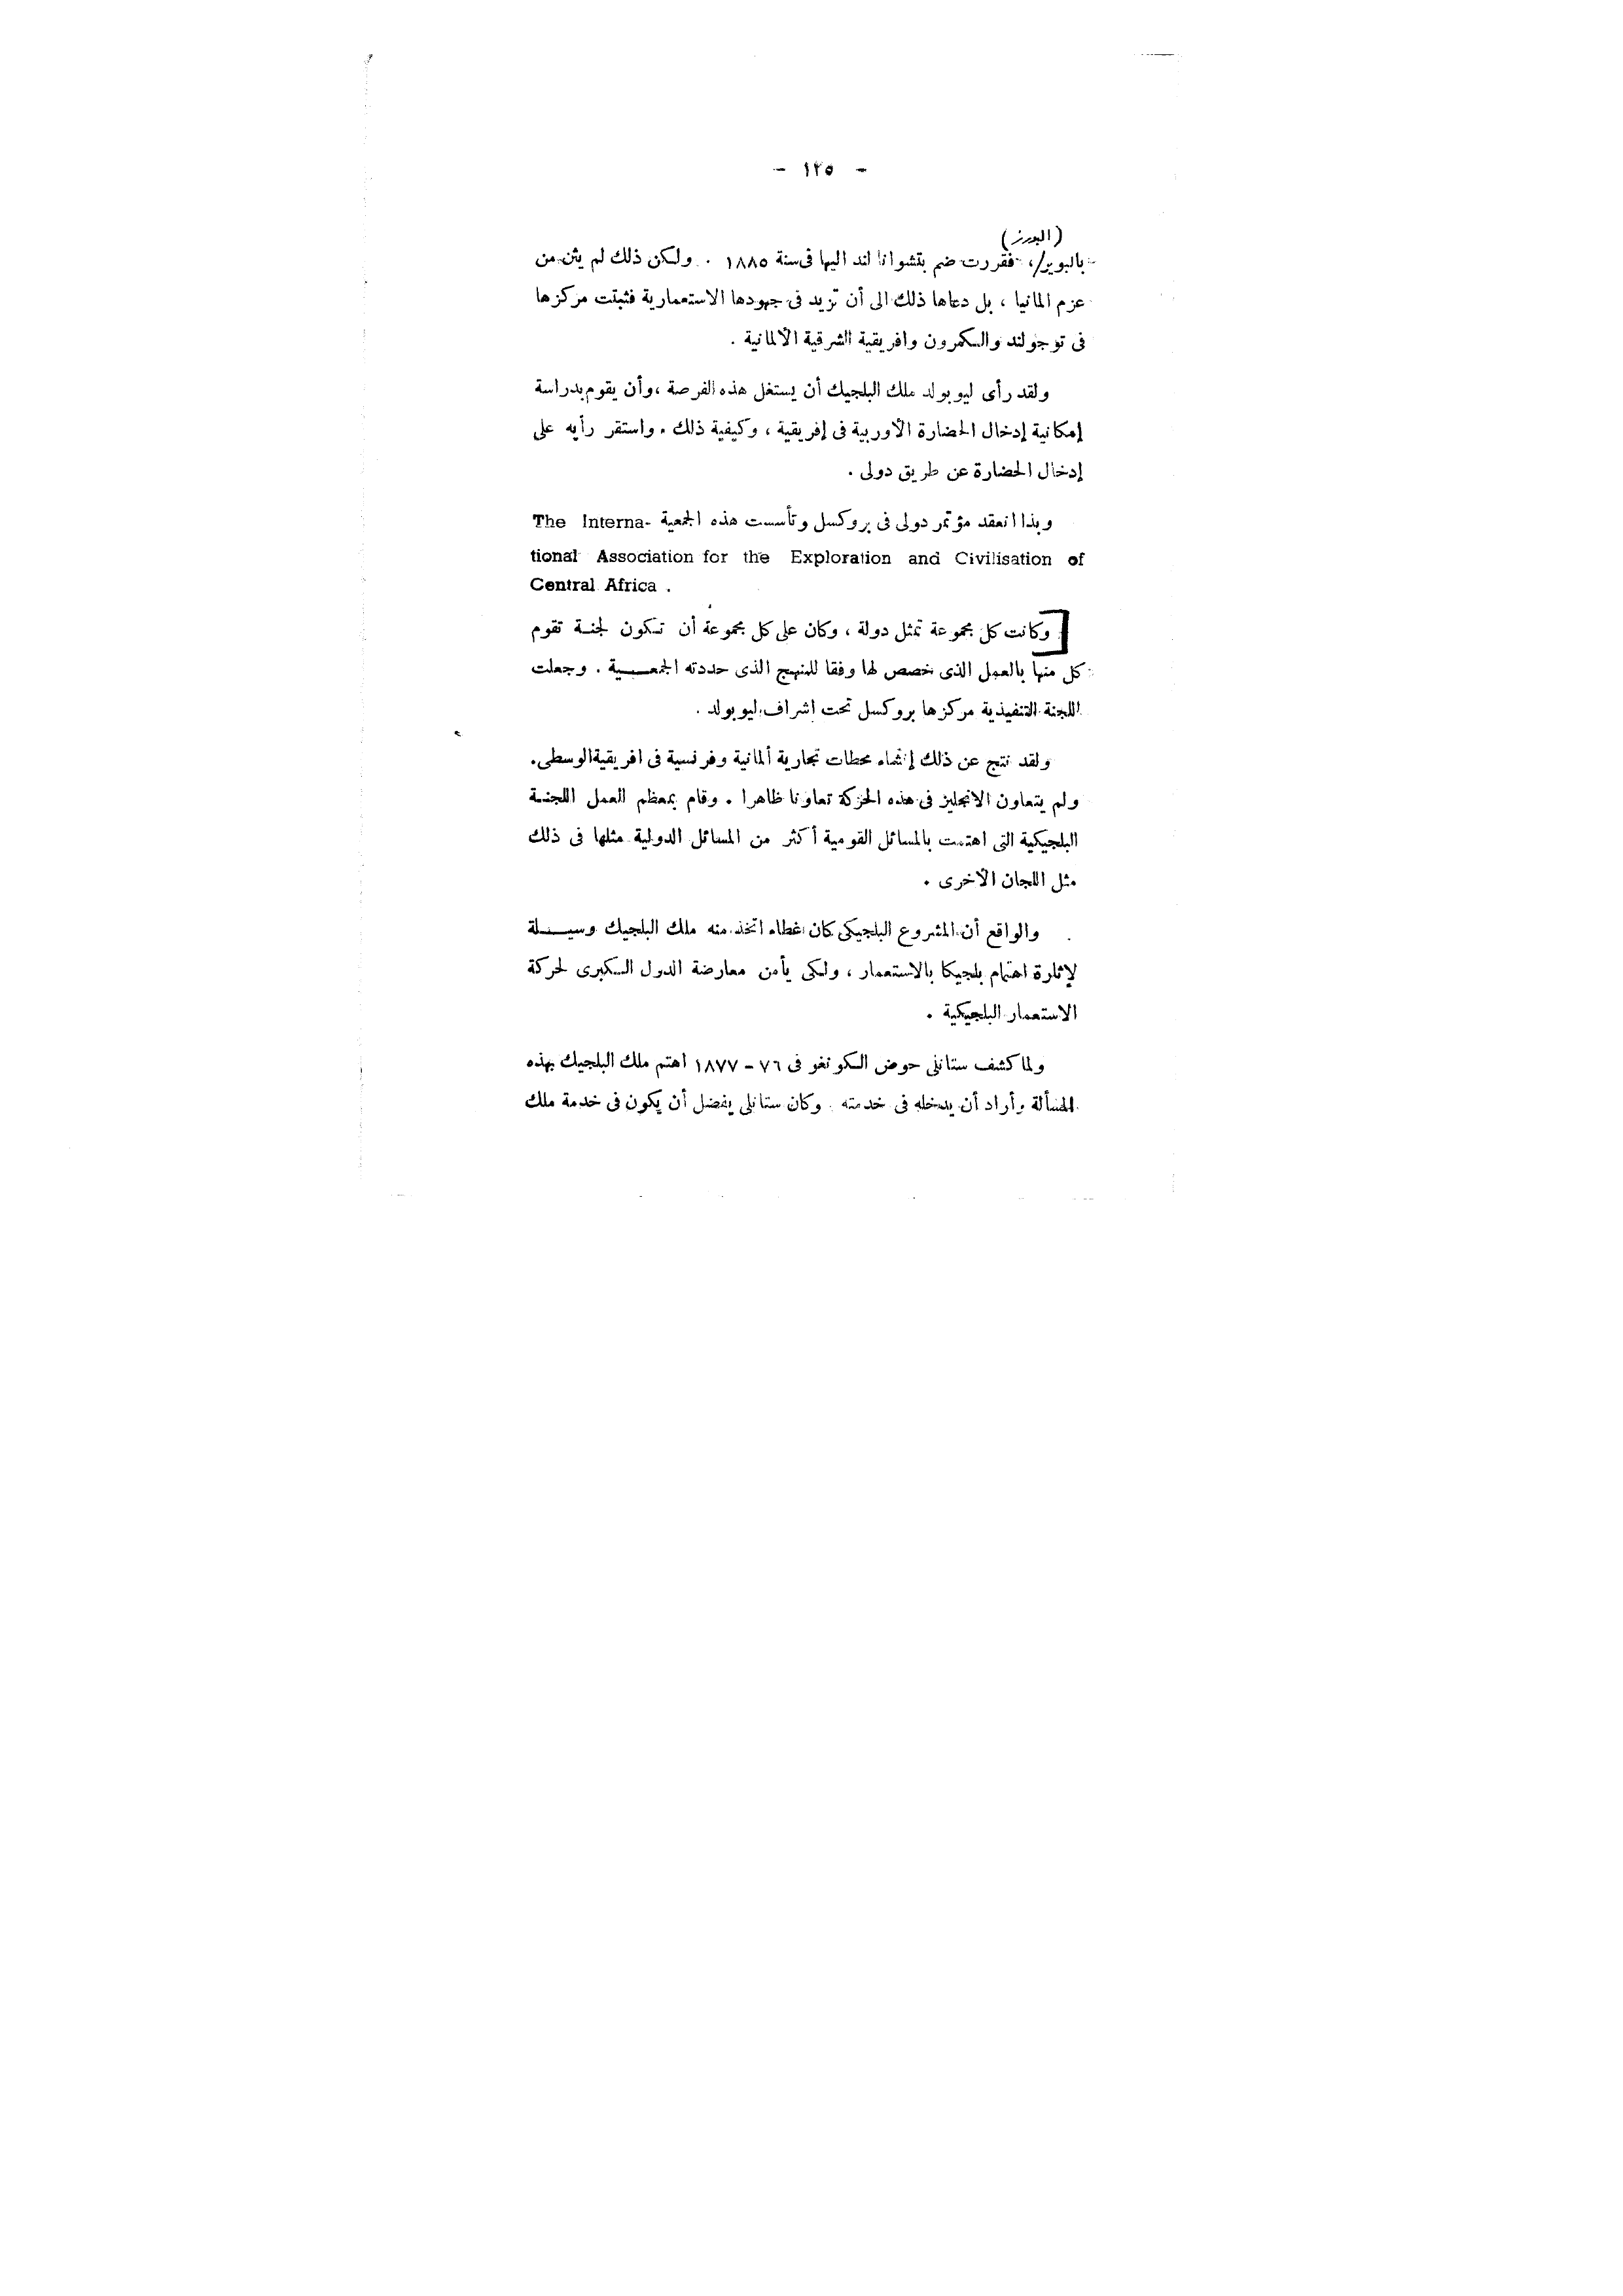 - ١٢٥ -
(البورز)
بالبوير/، فقررت ضم بتشوانا لند اليها فى سنة ١٨٨٥ . ولكن ذلك لم يثن من
عزم المانيا ، بل دعاها ذلك الى أن تزيد فى جهودها الاستعمارية فثبتت مركزها
فى توجولند والكمرون وافريقية الشرقية الألمانية .
ولقد رأى ليوبولد ملك البلجيك أن يستغل هذه الفرصة ، وأن يقوم بدراسة
إمكانية إدخال الحضارة الأوربية فى إفريقية ، وكيفية ذلك . واستقر رأيه على
إدخال الحضارة عن طريق دولى .
وبذا انعقد مؤتمر دولى فى بروكسل وتأسست هذه الجمعية The Interna-
tional Association for the Exploration and Civilisation of
Central Africa .
[وكانت كل مجموعة تمثل دولة ، وكان على كل مجموعة أن تكون لجنة تقوم
كل منها بالعمل الذى خصص لها وفقا للمنهج الذى حددته الجمعية . وجعلت
اللجنة التنفيذية مركزها بروكسل تحت اشراف ليوبولد .
ولقد نتج عن ذلك إنشاء محطات تجارية ألمانية وفرنسية فى افريقية الوسطى .
ولم يتعاون الانجليز فى هذه الحركة تعاونا ظاهرا . وقام بمعظم العمل اللجنة
البلجيكية التى اهتمت بالمسائل القومية أكثر من المسائل الدولية مثلها فى ذلك
مثل اللجان الأخرى .
والواقع أن المشروع البلجيكى كان غطاء اتخذ منه ملك البلجيك وسيلة
لإثارة اهتمام بلجيكا بالاستعمار ، ولكى يأمن معارضة الدول الكبرى لحركة
الاستعمار البلجيكية .
ولما كشف ستانلى حوض الكونغو فى ٧٦ - ١٨٧٧ اهتم ملك البلجيك بهذه
المسألة وأراد أن يدخله فى خدمته . وكان ستانلى يفضل أن يكون فى خدمة ملك